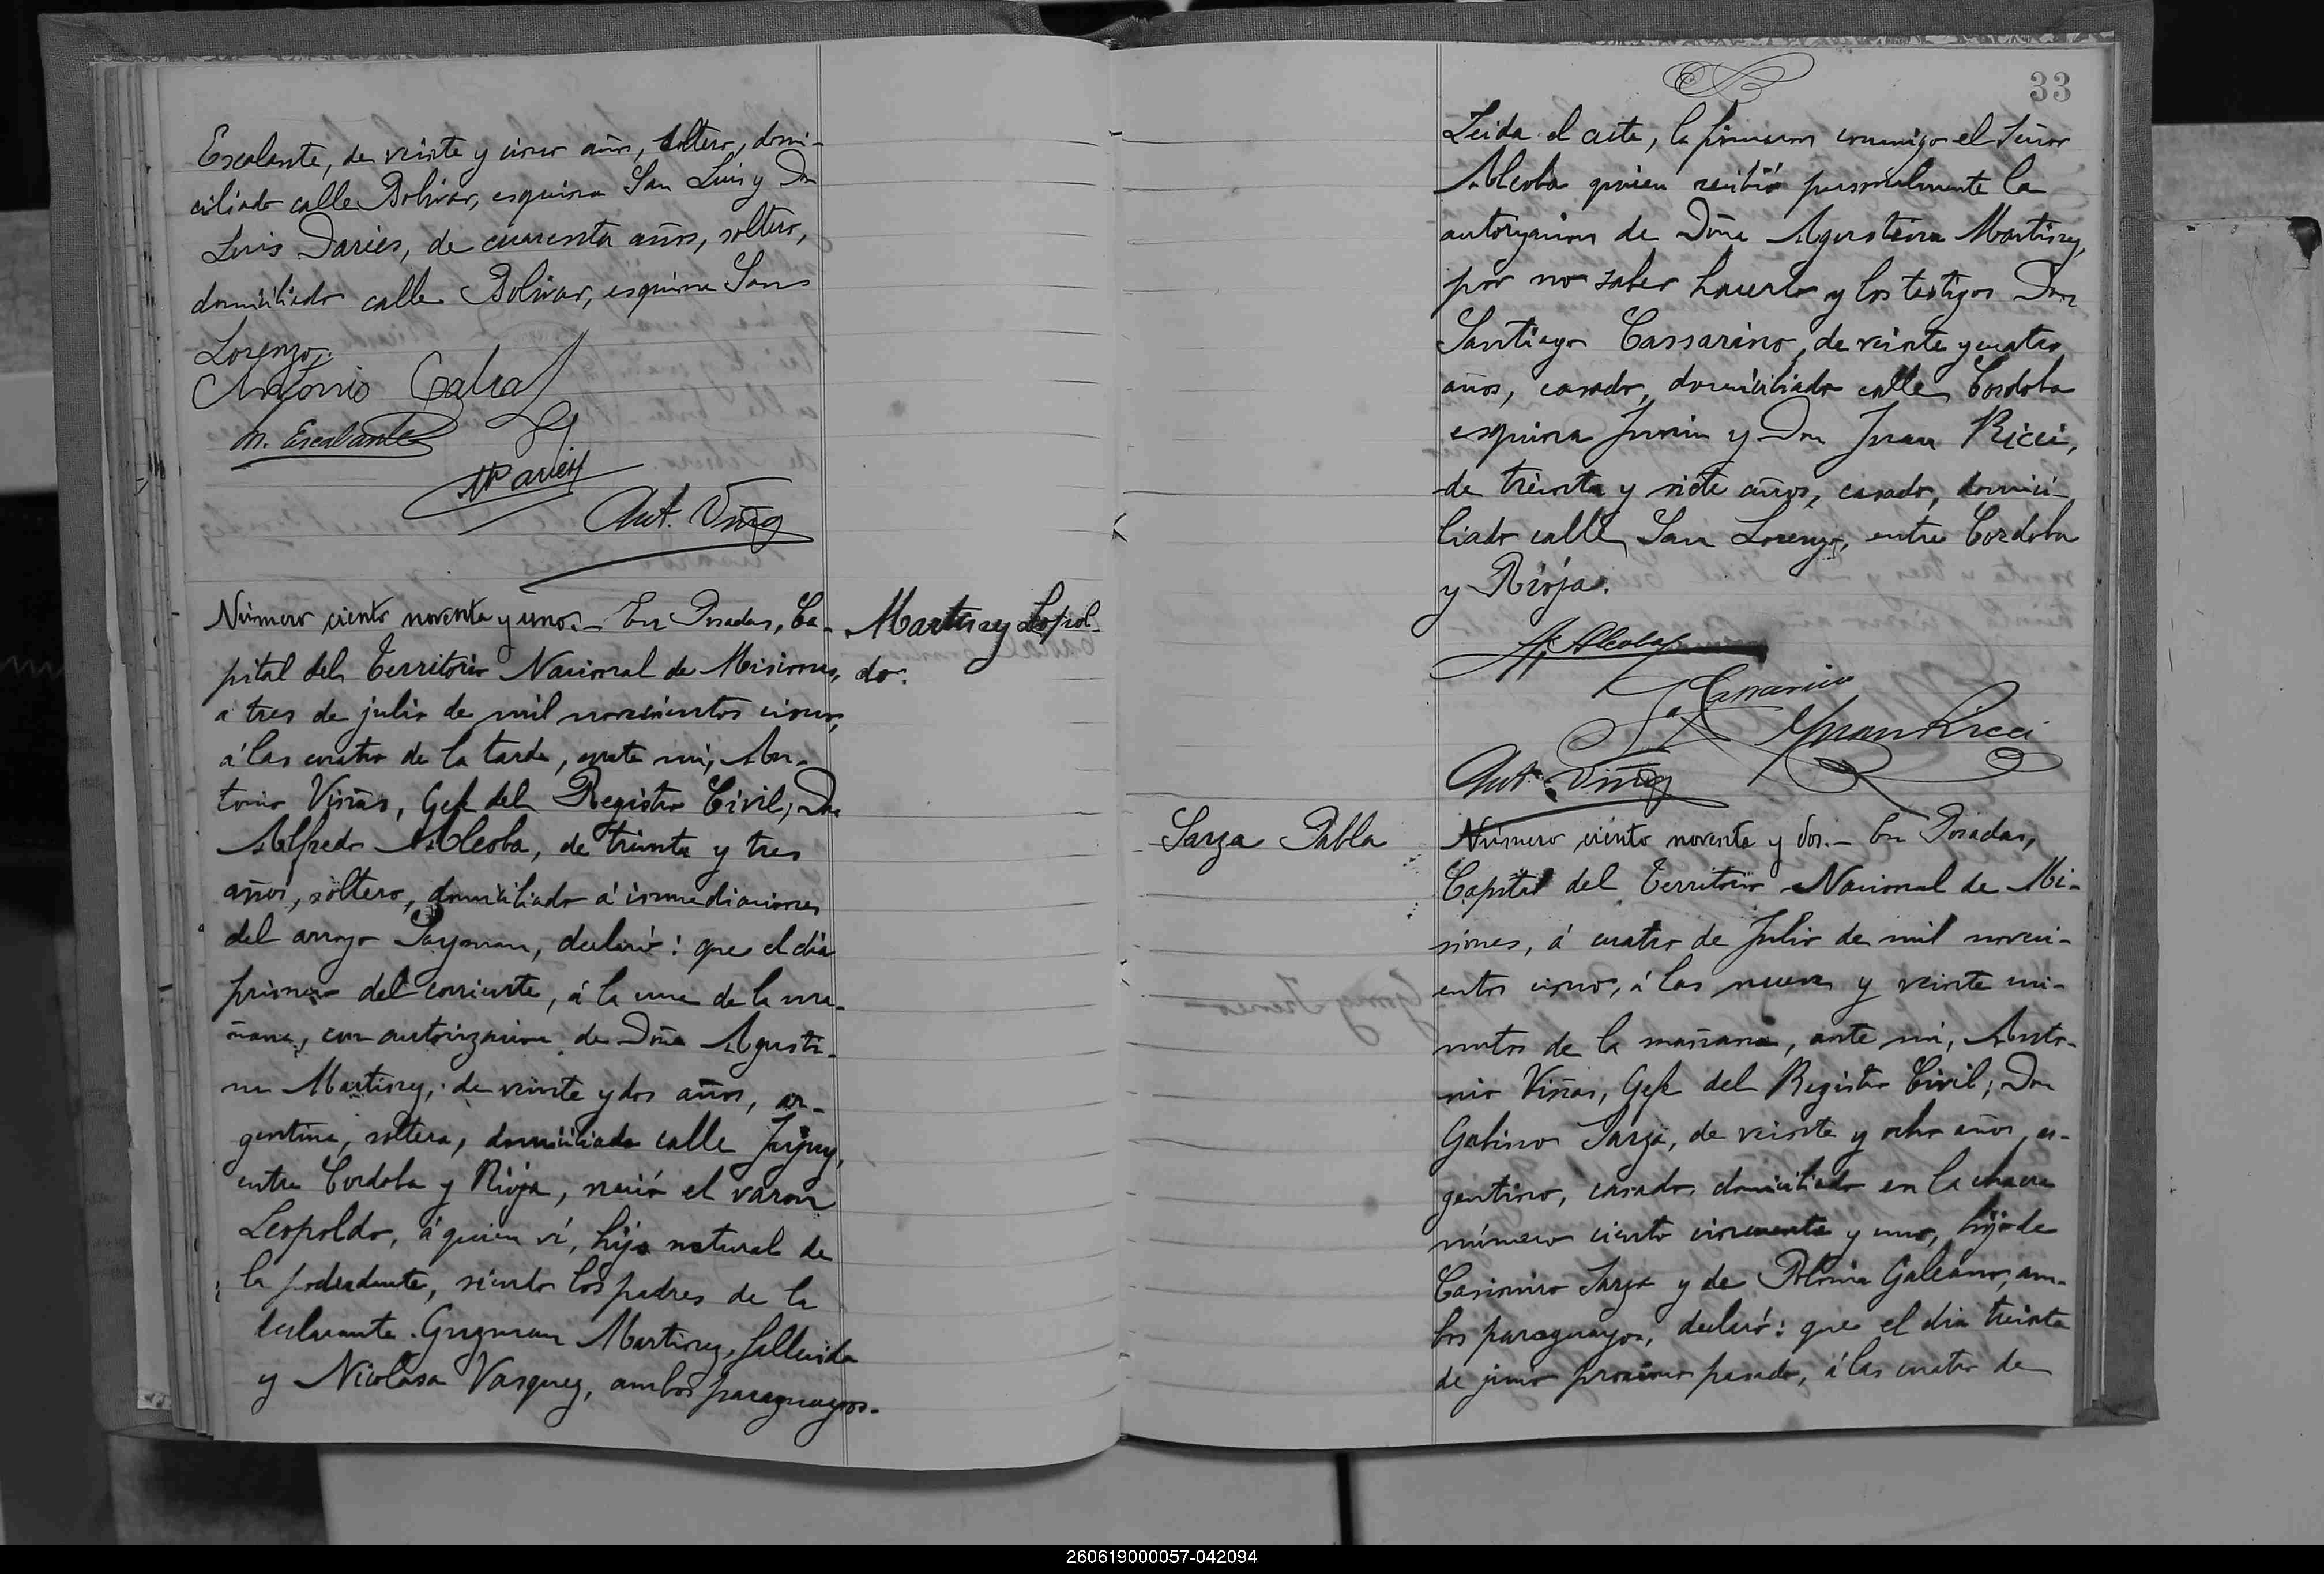 Escalante, de veinte y cinco años, soltero, domi-
ciliado calle Bolivar, esquina San Luis y Don
Luis Daries, de cuarenta años, soltero,
domiciliado calle Bolivar, esquina San
Lorenzo.
Antonio Cabral
M. Escalante
Ant. Viñas
Número ciento noventa y uno.- En Posadas, Ca-
pital del Territorio Nacional de Misiones,
á tres de julio de mil novecientos cinco,
á las cuatro de la tarde, ante mi, An-
tonio Viñas, Gefe del Registro Civil, Don
Alfredo Alcoba, de treinta y tres
años, soltero, domiciliado á inmediaciones
del arroyo Sayman, declaró: que el dia
primero del corriente, á la una de la ma-
ñana, con autorizacion de Doña Agusti-
na Martinez, de veinte y dos años, ar-
gentina, soltera, domiciliada calle Jujuy,
entre Cordoba y Rioja, nació el varon
Leopoldo, á quien ví, hijo natural de
la poderdante, siendo los padres de la
declarante Guzman Martinez, fallecido
y Nicolasa Vasquez, ambos paraguayos.-
Martinez Leopol-
do.
33
Leida el acta, la firmaron conmigo el Señor
Alcoba quien recibió personalmente la
autorizacion de Doña Agustina Martinez,
por no saber hacerlo y los testigos Don
Santiago Cassarino, de veinte y cuatro
años, casado, domiciliado calle Cordoba
esquina Junin y Don Juan Ricci,
de treinta y siete años, casado, domici-
liado calle San Lorenzo, entre Cordoba
y Rioja.
A. Alcoba
S. Cassarino
Juan Ricci
Ant. Viñas
Sarza Pabla
Número ciento noventa y dos.- En Posadas,
Capital del Territorio Nacional de Mi-
siones, á cuatro de Julio de mil noveci-
entos cinco, á las nueve y veinte mi-
nutos de la mañana, ante mi, Anto-
nio Viñas, Gefe del Registro Civil, Don
Gabino Sarza, de veinte y ocho años, ar-
gentino, casado, domiciliado en la chacra
número ciento cincuenta y uno, hijo de
Casimiro Sarza y de Polonia Galeano, am-
bos paraguayos, declaró: que el dia treinta
de junio proximo pasado, á las cuatro de
260619000057-042094